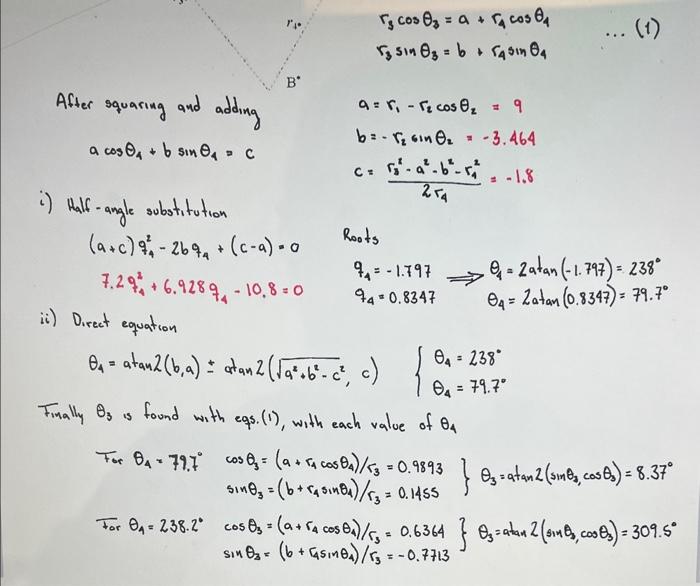 r₄.
B'
r₃ cos θ₃ = a + r₄ cos θ₄
... (1)
r₃ sin θ₃ = b + r₄ sin θ₄
After squaring and adding
a cos θ₄ + b sin θ₄ = c
a = r₁ - r₂ cos θ₂ = 9
b = - r₂ sin θ₂ = -3.464
c = (r₃² - a² - b² - r₄²) / 2r₄ = -1.8
i) Half-angle substitution
(a+c) q₄² - 2b q₄ + (c-a) = 0
7.2 q₄² + 6.928 q₄ - 10.8 = 0
Roots
q₄ = -1.797 ⟹ θ₄ = 2atan(-1.797) = 238°
q₄ = 0.8347 θ₄ = 2atan(0.8347) = 79.7°
ii) Direct equation
θ₄ = atan2(b,a) ± atan2(√(a²+b²-c²), c) { θ₄ = 238°
θ₄ = 79.7°
Finally θ₃ is found with eqs.(1), with each value of θ₄
For θ₄ = 79.7° cos θ₃ = (a + r₄ cos θ₄)/r₃ = 0.9893
sin θ₃ = (b + r₄ sin θ₄)/r₃ = 0.1455 } θ₃ = atan2(sin θ₃, cos θ₃) = 8.37°
For θ₄ = 238.2° cos θ₃ = (a + r₄ cos θ₄)/r₃ = 0.6364 } θ₃ = atan2(sin θ₃, cos θ₃) = 309.5°
sin θ₃ = (b + r₄ sin θ₄)/r₃ = -0.7713